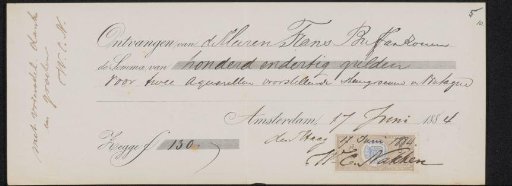 5
10
Ontvangen van de Heeren Frans Buffa en Zonen
de Somma van honderd en dertig gulden
voor twee aquarellen voorstellende
Amsterdam, 17 Juni 1884
den Haag
Zegge f 130
17 Juni 1884
W. C. Nakken
met vriendel dank
en groeten
W. C. N.